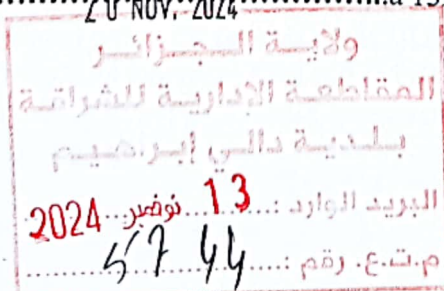 20 NOV. 2024
ولاية الجزائر
المقاطعة الإدارية للشراقة
بلدية دالي إبراهيم
البريد الوارد :....13 نوفمبر 2024
م.ت.ع. رقم :....5744....